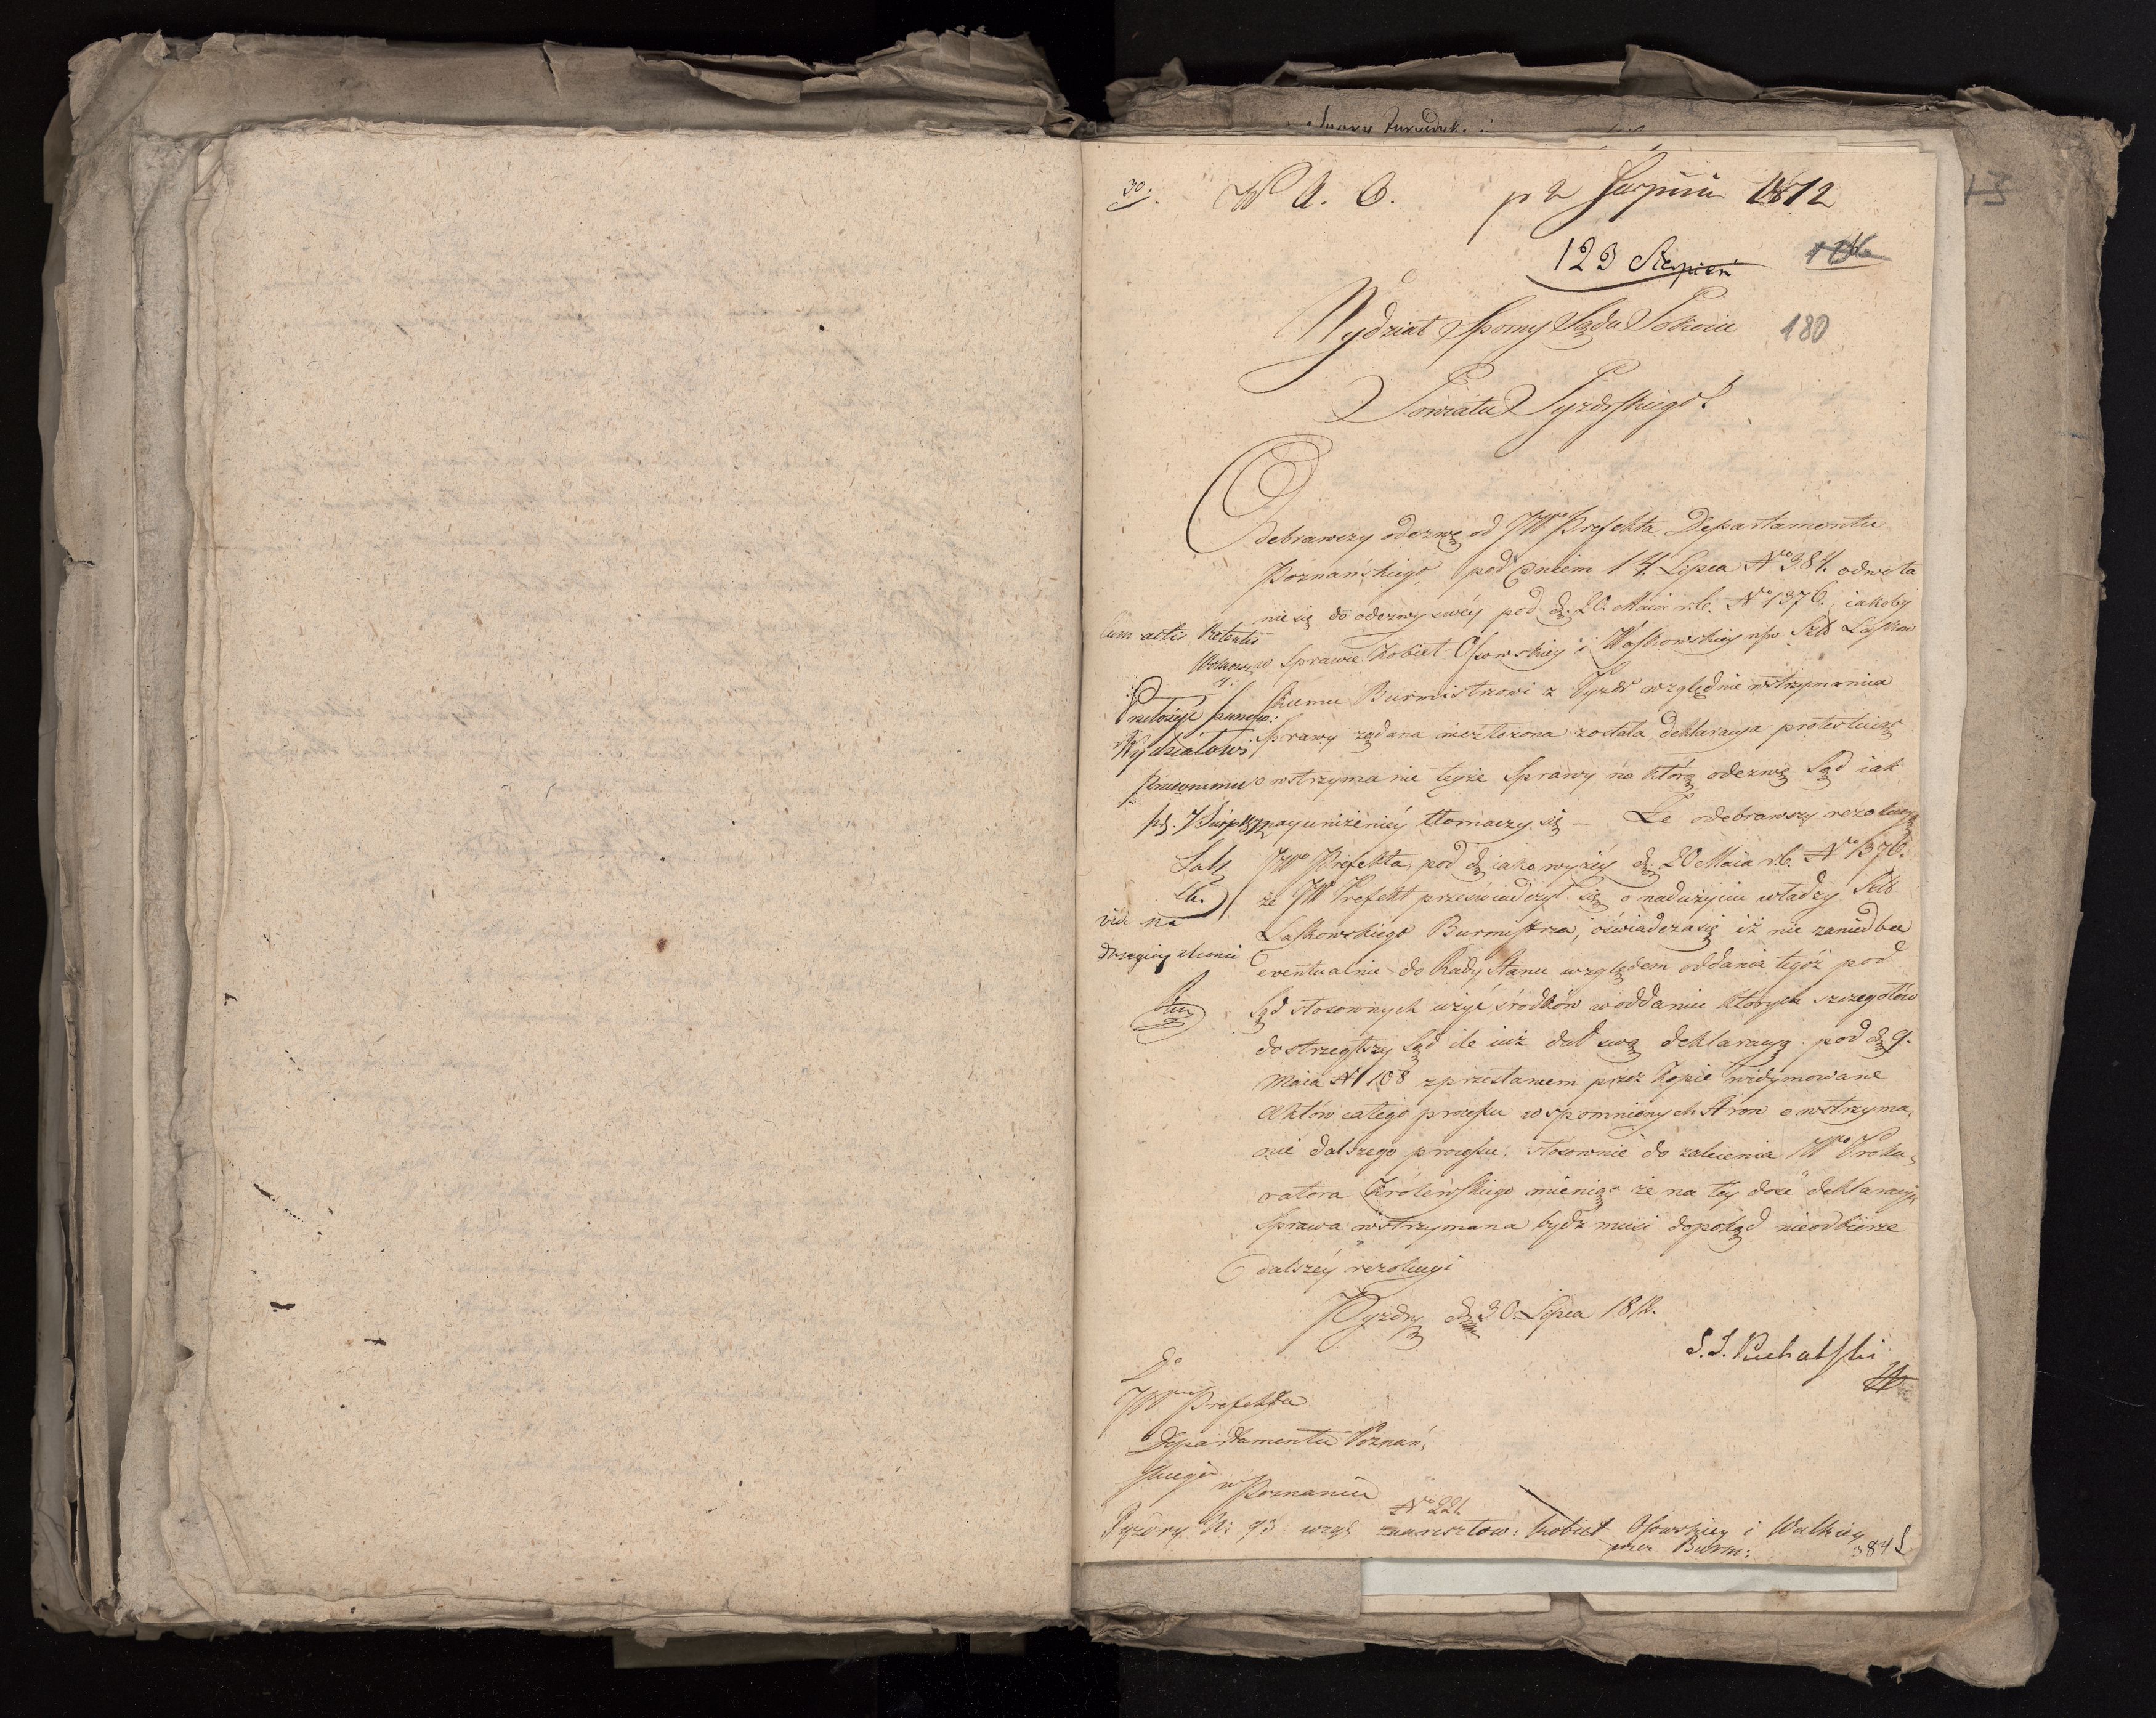 30.
W A. O. p 2 Sierpnia 1812
123 Sierpień
180
Wydział Sporny Sądu Pokoiu
Powiatu Pyzdrskiego
Odebrawszy odezwę od JWgo Prefekta Departamentu
Poznańskiego pod dniem 14. Lipca Nro 384. odwoła
nie się do odezwy swéy pod d. 20. Maia r.b. Nro 1376. iakoby
w Sprawie Kobiet Osowskiey i Waskowskiey npw. Szl Laskow
skiemu Burmistrzowi z Pyzdr względnie wstrzymania
Sprawy żądana niezłożona została deklaracya protestuiąc
o wstrzymanie teyże Sprawy na którą odezwę Sąd iak
nayuniżeniéy tłomaczy się – Że odebrawszy rezolucyą
JWgo Prefekta pod d. iako wyżéy d. 20 Maia r.b. Nro 1376.
że JW Prefekt przeświadczył się o nadużyciu władzy Szl
Laskowskiego Burmistrza, oświadcza się iż nie zaniedba
eventualnie do Rady Stanu względem oddania tegóż pod
Sąd stosownych użyć środków w oddaniu których szczegółów
dostrzegłszy Sąd ile iuż dał swą deklaracyą pod d. 9.
Maia N 108 z przesłaniem przez Kopie widymowane
Aktów całego processu wspomnionych Stron o wstrzyma,
nie dalszego processu, stosownie do zalecenia JWgo Proku,
ratora Królewskiego mieniąc że na tey dość deklaracyi
Sprawa wstrzymana bydź musi dopokąd nieodbierze
dalszéy rezolucyi
Pyzdry d. 30. Lipca 1812.
S. J. Puchalski
cum actis Retentis
Przełożyć
Wydziałowi
Prawnemu
vide na
drugiey stronie
Do
JWgo Prefekta
Departamentu Poznań,
skiego
w Poznaniu
Nro 221.
Pyzdry N: 93 wzgl zaaresztow: kobiet Osowskiey i Walkiey
przez Burm:
384 L